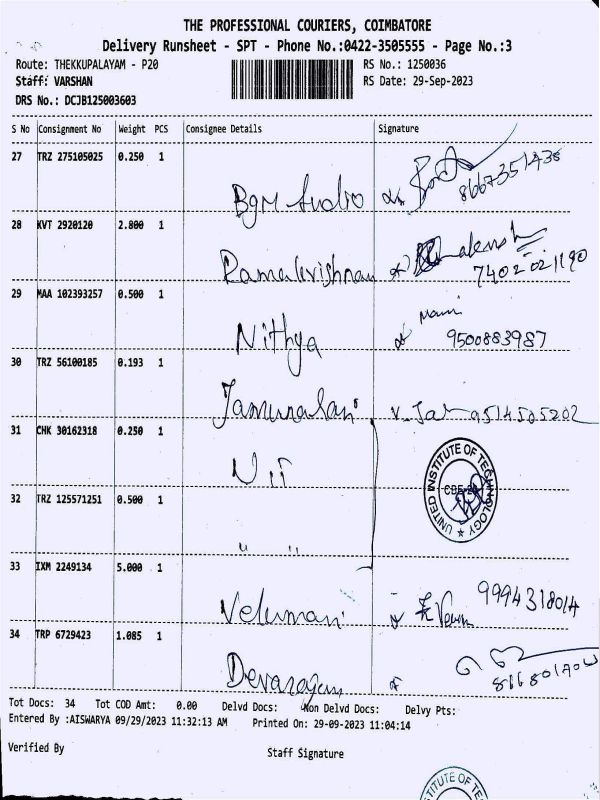 THE PROFESSIONAL COURIERS, COIMBATORE
Delivery Runsheet - SPT - Phone No.:0422-3505555 - Page No.:3
Route: THEKKUPALAYAM - P20 RS No.: 1250036
Staff: VARSHAN RS Date: 29-Sep-2023
DRS No.: DCJB125003603
S No Consignment No Weight PCS Consignee Details Signature
27 TRZ 275105025 0.250 1
Bgm Audio 8667351436
28 KVT 2920120 2.800 1
Ramakrishnan 7402021190
29 MAA 102393257 0.500 1
Nithya 9500883987
30 TRZ 56100185 0.193 1
9514505202
31 CHK 30162318 0.250 1
UNITED INSTITUTE OF TECHNOLOGY
32 TRZ 125571251 0.500 1
" "
33 IXM 2249134 5.000 1
Velumani 9994318014
34 TRP 6729423 1.085 1
Devarajan
Tot Docs: 34 Tot COD Amt: 0.00 Delvd Docs: Non Delvd Docs: Delvy Pts:
Entered By :AISWARYA 09/29/2023 11:32:13 AM Printed On: 29-09-2023 11:04:14
Verified By Staff Signature
UTE OF TE